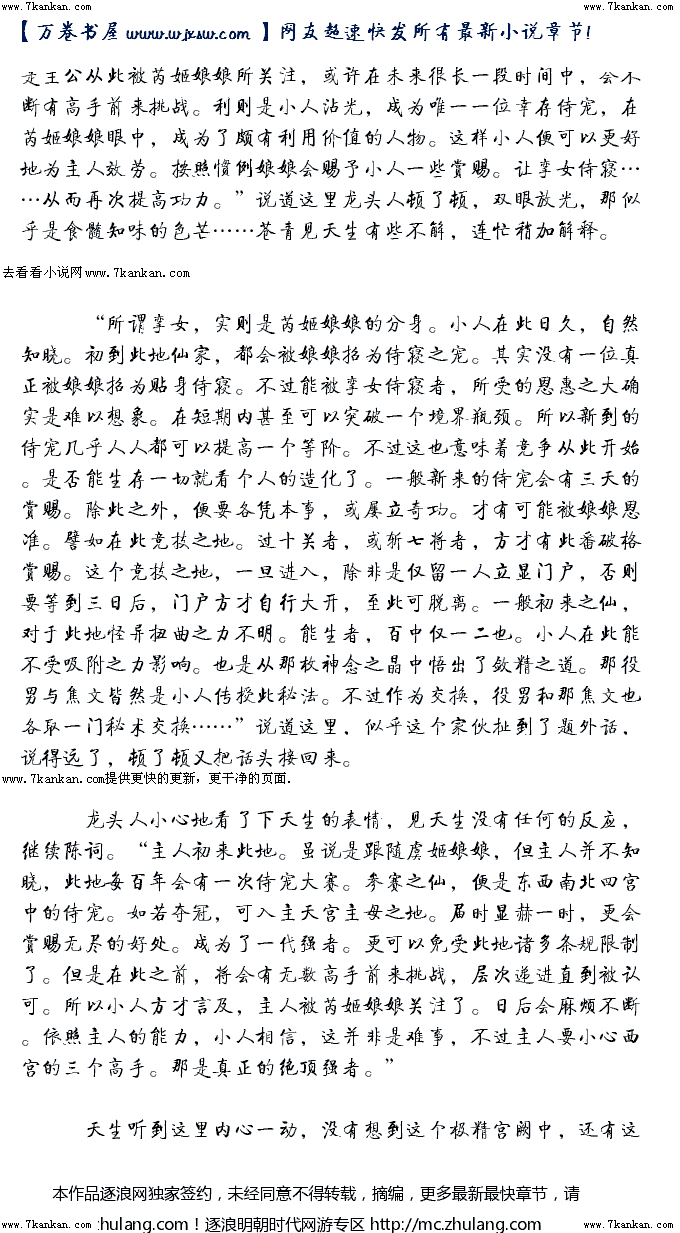 www.7kankan.com www.7kankan.com
【万卷书屋 www.wjxsw.com 】网友超速快发所有最新小说章节！
是主公从此被芮姬娘娘所关注，或许在未来很长一段时间中，会不
断有高手前来挑战。利则是小人沾光，成为唯一一位幸存侍宠，在
芮姬娘娘眼中，成为了颇有利用价值的人物。这样小人便可以更好
地为主人效劳。按照惯例娘娘会赐予小人一些赏赐。让孪女侍寝…
…从而再次提高功力。”说道这里龙头人顿了顿，双眼放光，那似
乎是食髓知味的色芒……苍青见天生有些不解，连忙稍加解释。
去看看小说网www.7kankan.com
“所谓孪女，实则是芮姬娘娘的分身。小人在此日久，自然
知晓。初到此地仙家，都会被娘娘招为侍寝之宠。其实没有一位真
正被娘娘招为贴身侍寝。不过能被孪女侍寝者，所受的恩惠之大确
实是难以想象。在短期内甚至可以突破一个境界瓶颈。所以新到的
侍宠几乎人人都可以提高一个等阶。不过这也意味着竞争从此开始
。是否能生存一切就看个人的造化了。一般新来的侍宠会有三天的
赏赐。除此之外，便要各凭本事，或屡立奇功。才有可能被娘娘恩
准。譬如在此竞技之地。过十关者，或斩七将者，方才有此番破格
赏赐。这个竞技之地，一旦进入，除非是仅留一人立显门户，否则
要等到三日后，门户方才自行大开，至此可脱离。一般初来之仙，
对于此地怪异扭曲之力不明。能生者，百中仅一二也。小人在此能
不受吸附之力影响。也是从那枚神念之晶中悟出了敛精之道。那役
男与焦文皆然是小人传授此秘法。不过作为交换，役男和那焦文也
各取一门秘术交换……”说道这里，似乎这个家伙扯到了题外话，
说得远了，顿了顿又把话头接回来。
www.7kankan.com提供更快的更新，更干净的页面.
龙头人小心地看了下天生的表情，见天生没有任何的反应，
继续陈词。“主人初来此地。虽说是跟随虞姬娘娘，但主人并不知
晓，此地每百年会有一次侍宠大赛。参赛之仙，便是东西南北四宫
中的侍宠。如若夺冠，可入主天宫主母之地。届时显赫一时，更会
赏赐无尽的好处。成为了一代强者。更可以免受此地诸多条规限制
了。但是在此之前，将会有无数高手前来挑战，层次递进直到被认
可。所以小人方才言及，主人被芮姬娘娘关注了。日后会麻烦不断
。依照主人的能力，小人相信，这并非是难事，不过主人要小心西
宫的三个高手。那是真正的绝顶强者。”
天生听到这里内心一动，没有想到这个极精宫阙中，还有这
本作品逐浪网独家签约，未经同意不得转载，摘编，更多最新最快章节，请
www.7kankan.com hulang.com！逐浪明朝时代网游专区 http://mc.zhulang.com www.7kankan.com